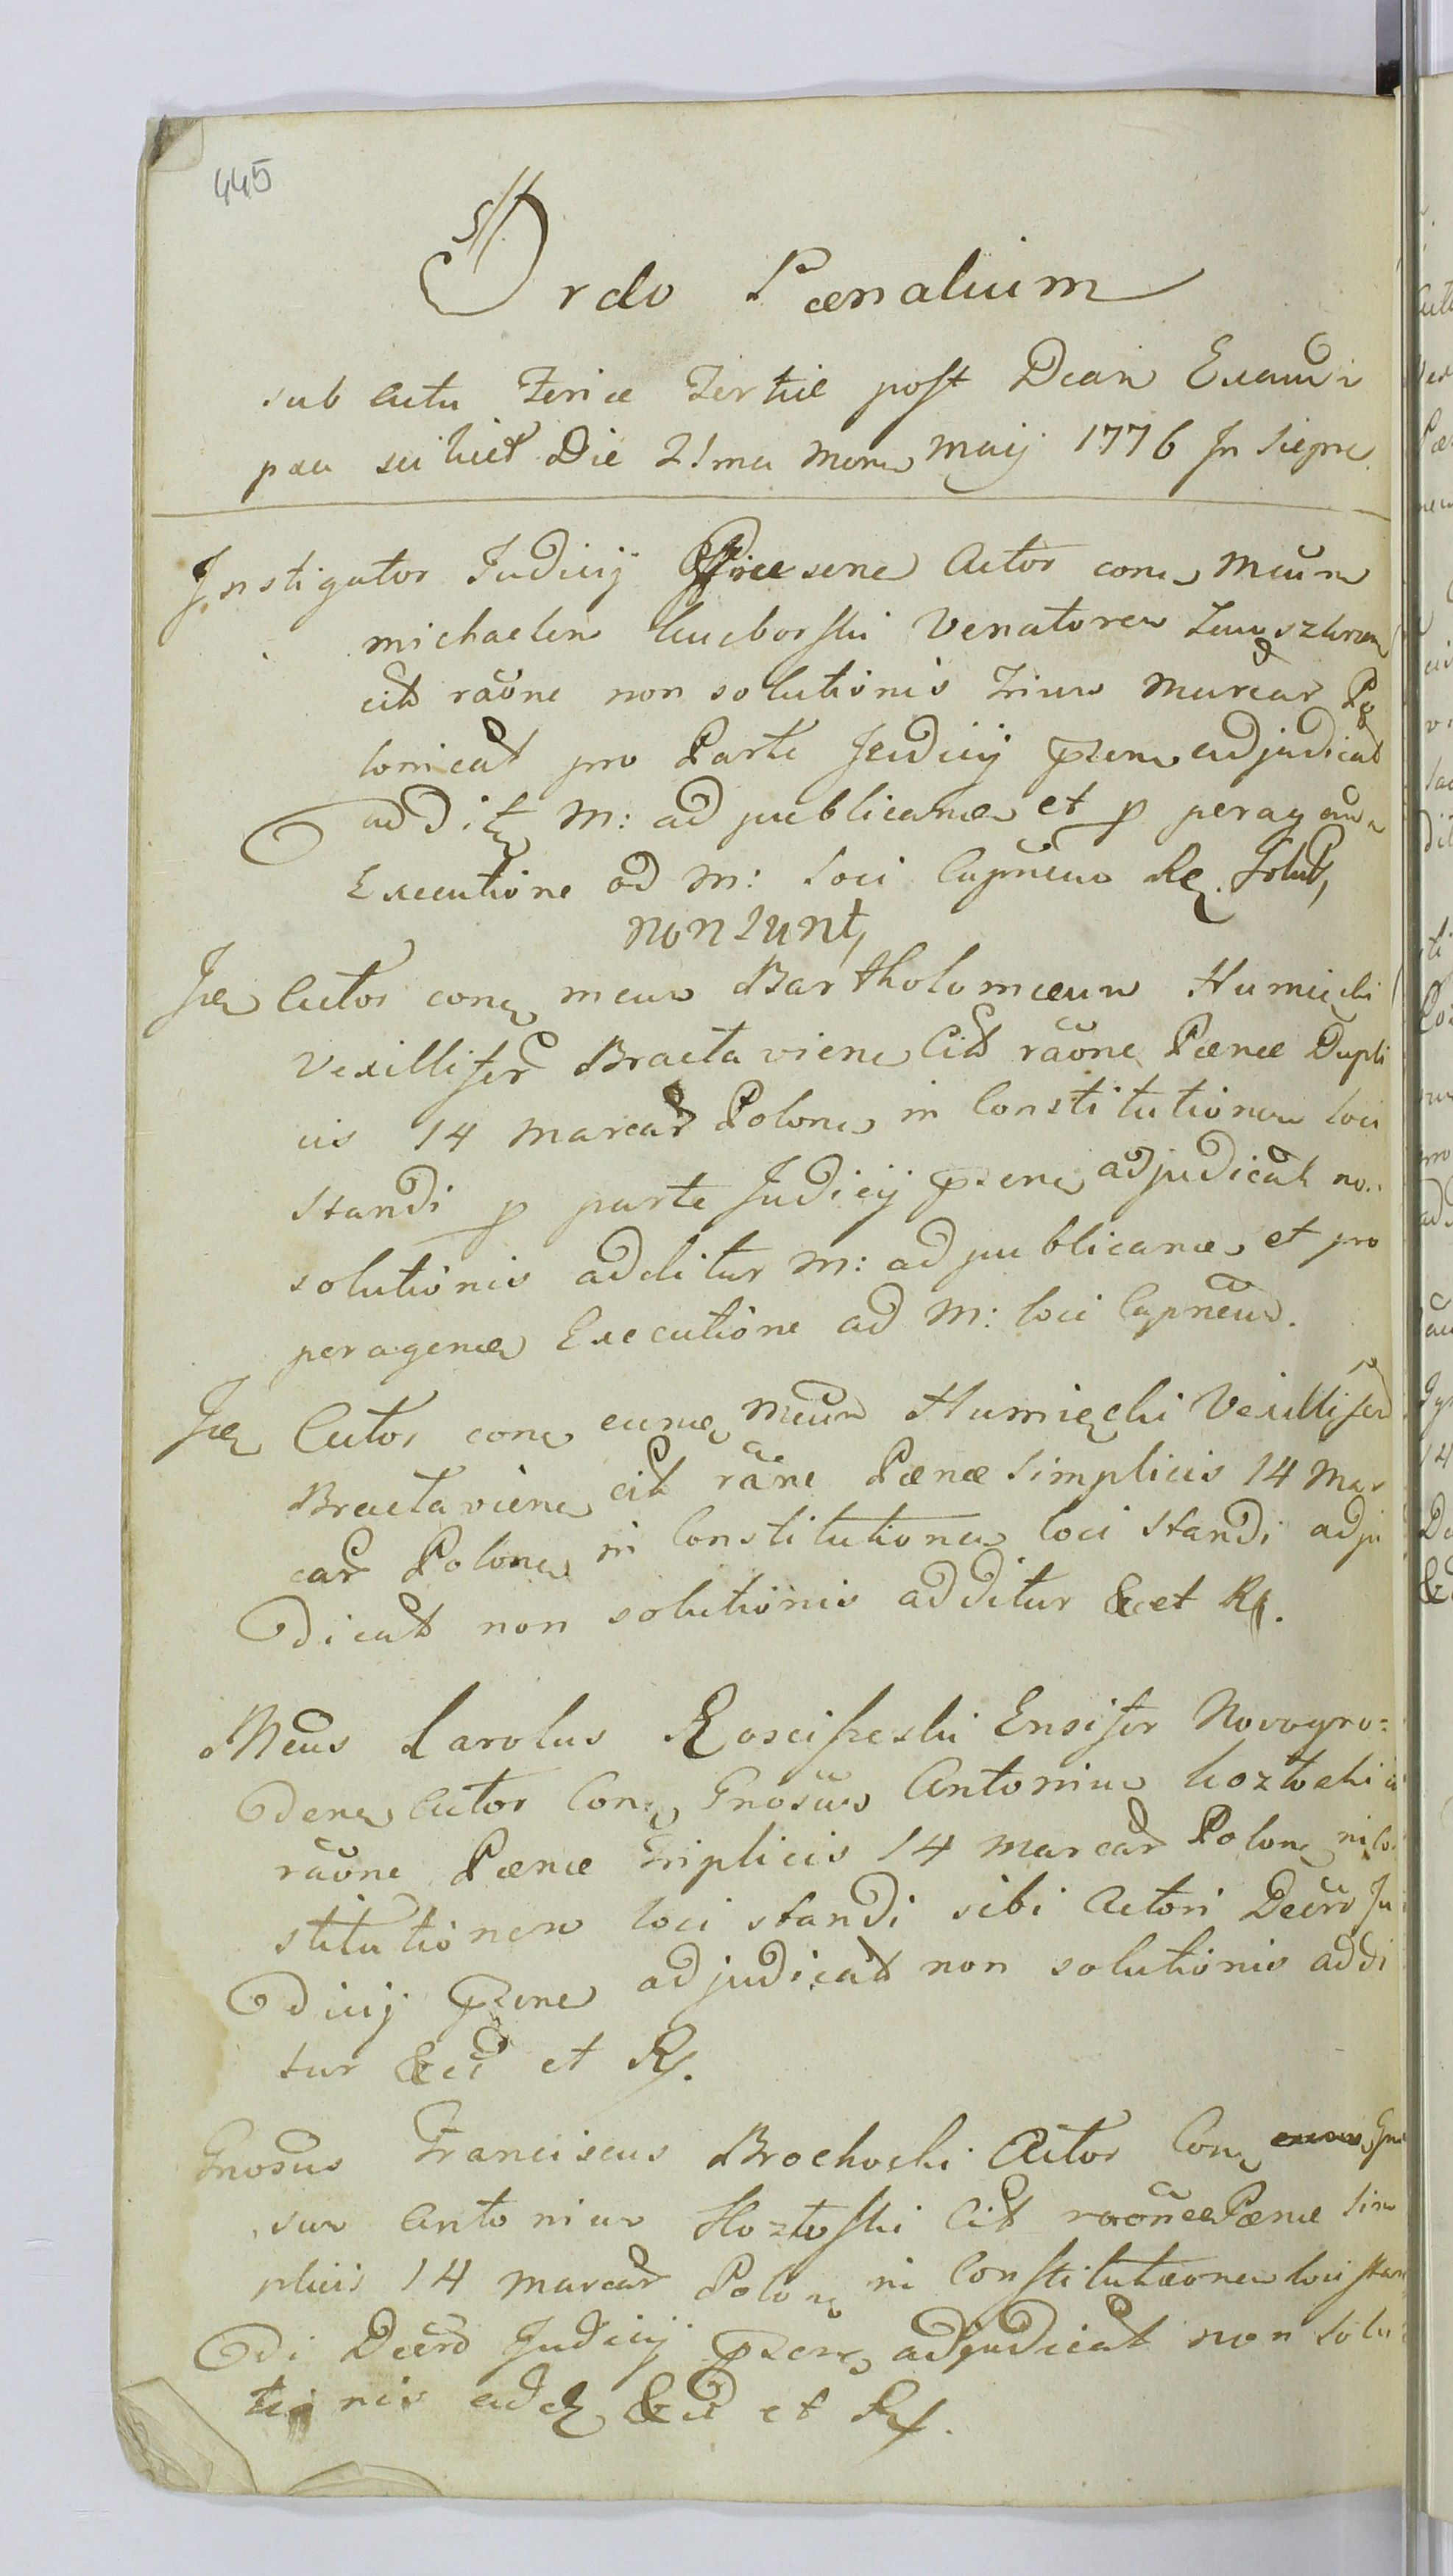 445
Ordo Pænalium
sub Actu Feriæ Tertiæ post Dcam Exaudi
pxa scilicet Die 21ma Mens Maij 1776 In
Instigator Judicij Præsene Actor conc Mcum
Michaelem Venatorem
cit rãone non solutionis Trium Marcar Po
lonicat pro Parte Judicij pzens adjudicat
addit M: ad publicand et p peragend
Executione ad M: loci Capnëum Rg. Solut,
non sunt,
Ide Actor conc mcum Bartholomæum Humięcki
Vexillifer Bractaviene Cit rãone Pænæ Dupli
cis 14 Marcar Polone in Constitutionem loci
standi p parte Judicij pzene adjudicat no..
solutionis additur M: ad publicand et pro
peragend Executione ad M: loci Capnëum.
Ide Actor conc eund Mcum Humięcki Vexillifer
Bractaviene cit rãne Pænæ simplicis 14 Mar
car Polone in Constitutionem loci standi adju
dicat non solutionis additur & et Rg.
Mcus Carolus Rosciszeski Ensifer Novogro=
dene Actor Conc Gnosum Antonium
rãone Pænæ Triplicis 14 Marcar Polon in Co
stitutionem loci standi sibi Actori Decro Ju
dicij pzene adjudicat non solutionis addi
tur &ct et Rg.
Gnosus Franciscus Brochocki Actor Conc Gno
sum Antonium Cit rãone Pænæ Sim
plicis 14 Marcar Polon in Constitutionem loci stan
di Decro Judicij pzene adjudicat non solu
tionis add &ct et Rg.